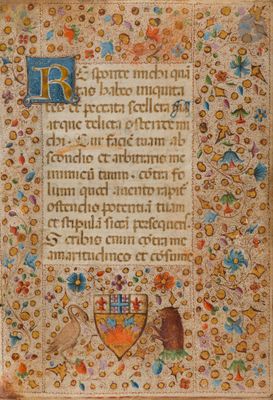 Re sponde michi quã
tas habeo iniquita
tes et peccata scellera
atque delicta ostende mi
chi Cur faciẽ tuam ab
scondis et arbitraris me
inimicũ tuum. cõtra fo
lium quod uento rapit᷑
ostendis potentiã tuam
et stipulã sicã persequeris
Scribis enim cõtra me
amaritudines et cõsume